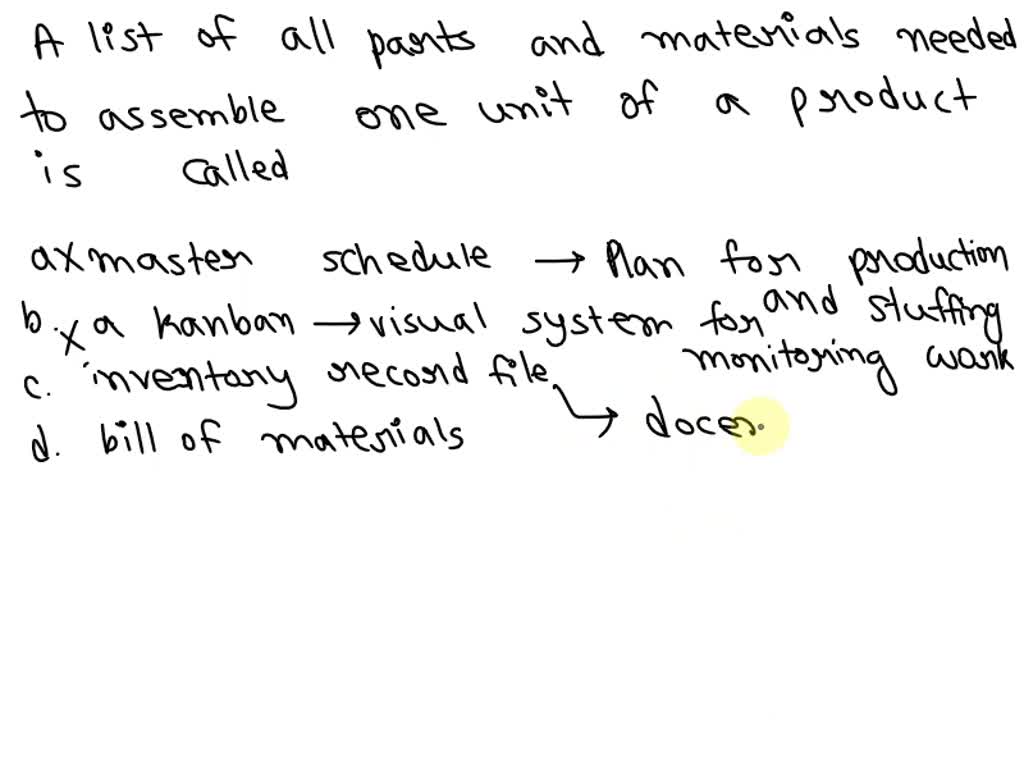 A list of all parts and materials needed
to assemble one unit of a product
is called
a x master schedule → Plan for production
and stuffing
b. x a kanban → visual system for
monitoring work
c. inventory record file
→ doces
d. bill of materials